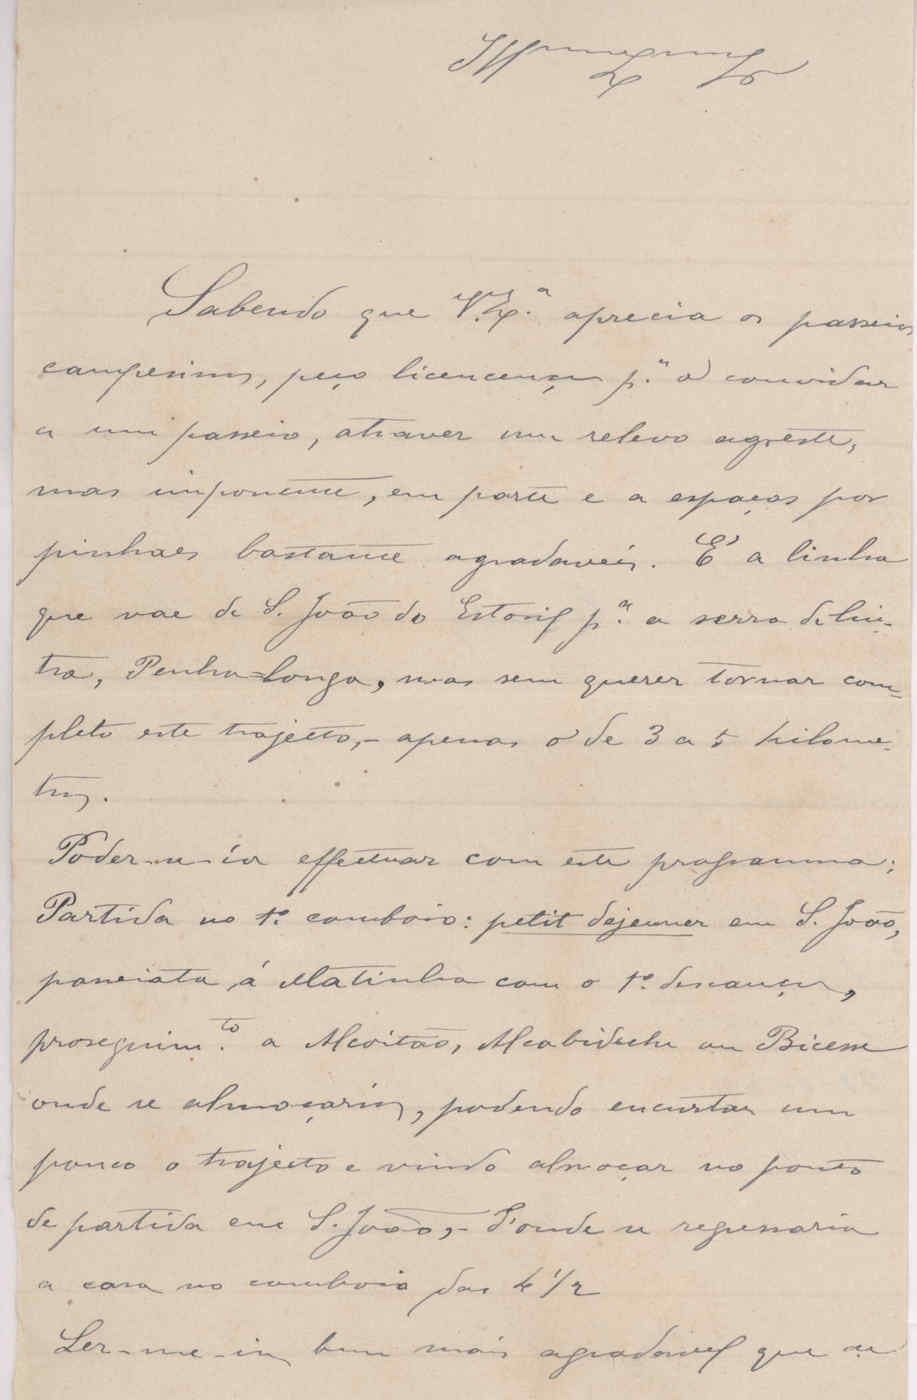 Sabendo que V. Ex.ª aprecia os passeios
campesinos, peço licencença p.ª o convidar
a um passeio, atravez um relevo agreste,
mas imponente, em parte e a espaços por
pinhaes bastante agradaveis. E' a linha
que vae de S. João do Estoril p.ª a serra de Cin-
tra, Penha-Longa, mas sem querer tornar com-
pleto este trajecto, - apenas o de 3 a 5 kilome-
tros.
Poder-se-ía effectuar com este programma:
Partida no 1º. comboio: petit dejeuner em S. João,
passeiata á Matinha com o 1º. descanço,
proseguim.to a Alcoitão, Alcabideche ou Bicesse
onde se almoçaria, podendo encurtar um
pouco o trajecto e vindo almoçar no ponto
de partida em S. João, - d'onde se regressaria
a casa no comboio das 4 1/2
Ser-me-ia bem mais agradavel que se